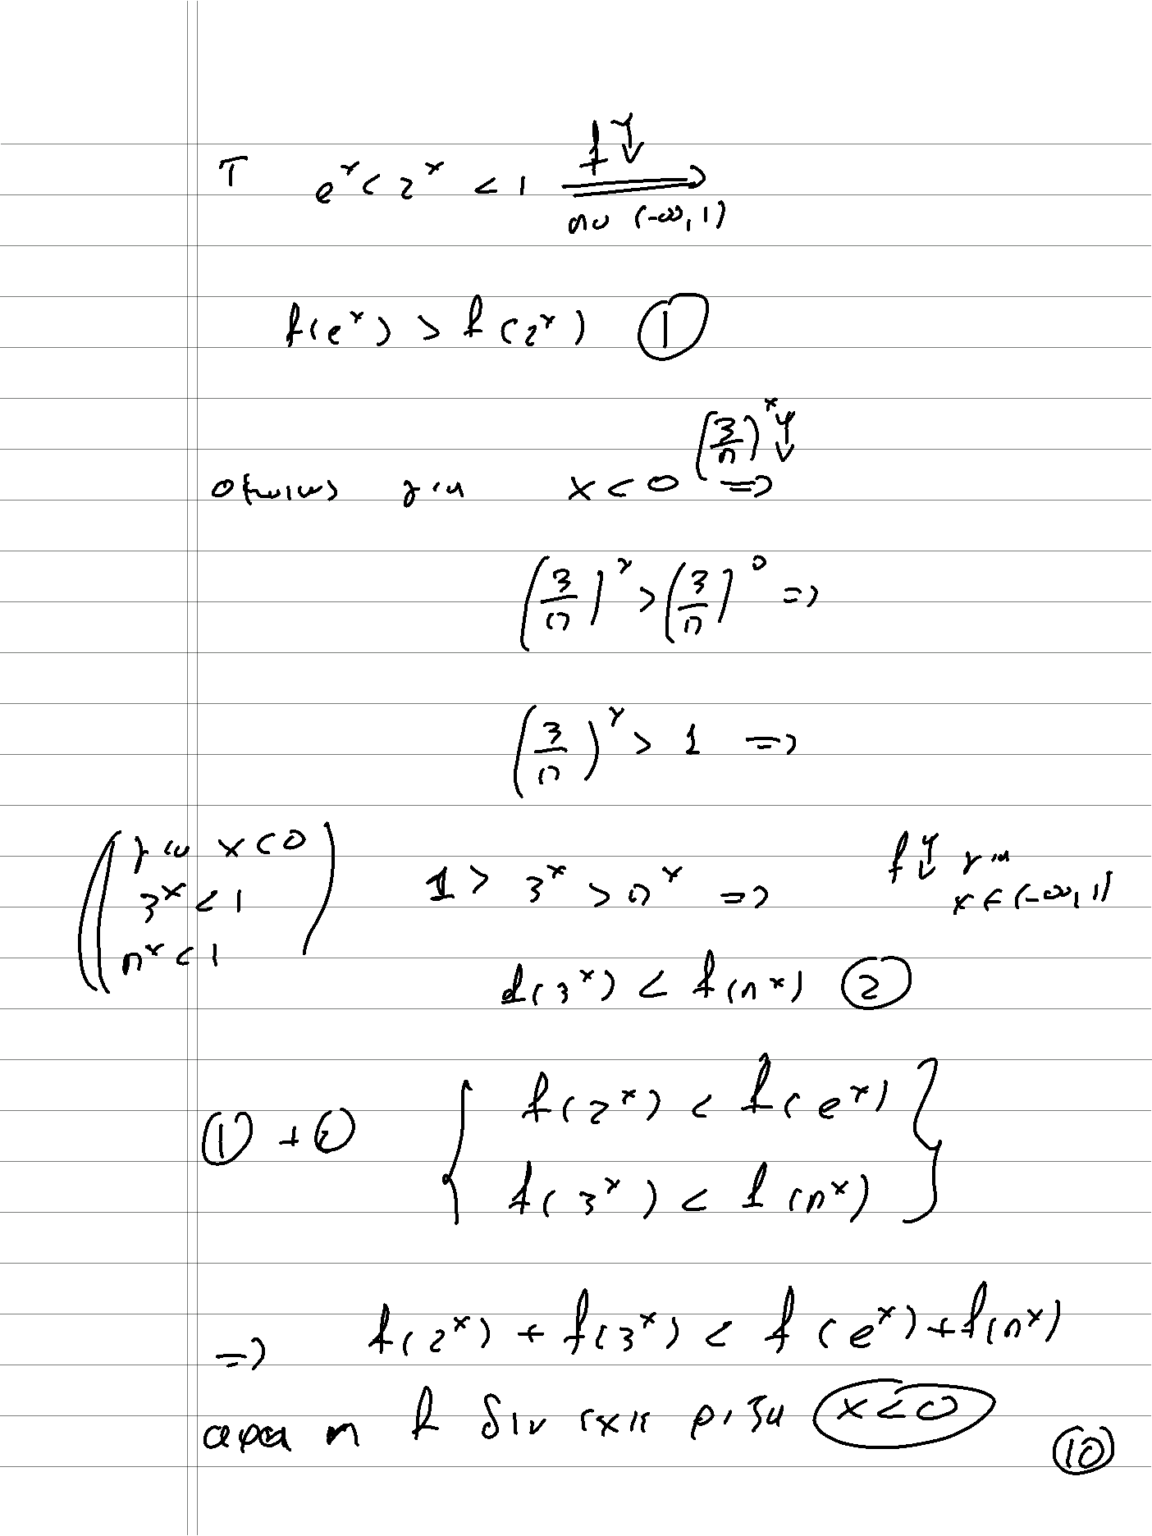 T e^x < 2^x < 1 ⟹ f↓
στο (-∞, 1)
f(e^x) > f(2^x) ①
ομοίως για x < 0 ⟹ (3/π)^x ↓
(3/π)^x > (3/π)^0 ⟹
(3/π)^x > 1 ⟹
(για x < 0
3^x < 1
π^x < 1)
1 > 3^x > π^x ⟹ f↓ για
x ∈ (-∞, 1)
f(3^x) < f(π^x) ②
① + ② { f(2^x) < f(e^x)
f(3^x) < f(π^x) }
⟹ f(2^x) + f(3^x) < f(e^x) + f(π^x)
αρα η f δεν εχει ριζα x < 0
⑩